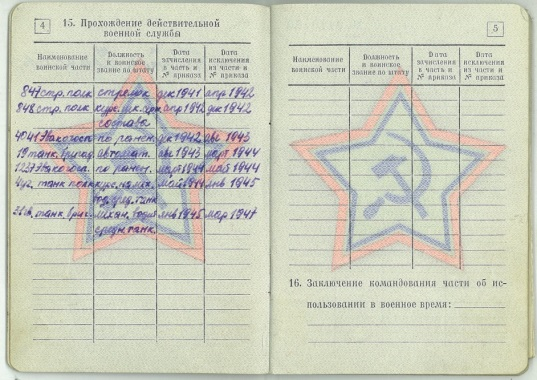 4
15. Прохождение действительной
военной службы
Наименование воинской части
Должность и воинское звание по штату
Дата зачисления в часть и № приказа
Дата исключения из части и № приказа
847 стр. полк стрелок дек 1941 апр 1942
848 стр. полк апр 1942 дек 1942
состава
по ранен. дек 1942 авг 1943
19 танк. автомат. авг 1943 март 1944
по ранен. март 1944 май 1944
танк. полк май 1944 янв 1945
танк
танк. янв 1945 мар 1947
средн. танк.
5
Наименование воинской части
Должность и воинское звание по штату
Дата зачисления в часть и № приказа
Дата исключения из части и № приказа
16. Заключение командования части об ис-
пользовании в военное время: